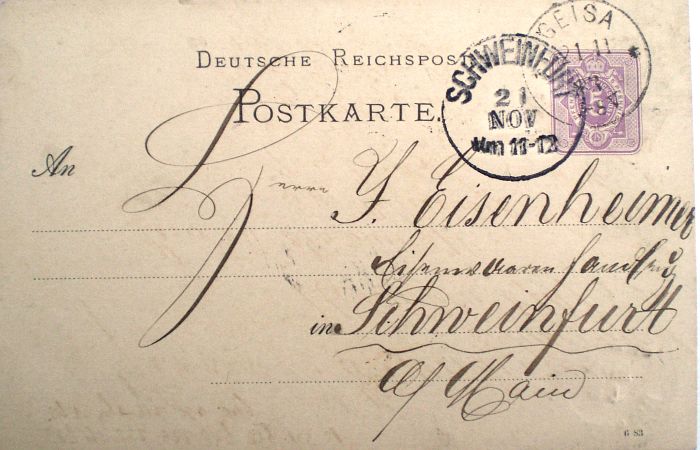 DEUTSCHE REICHSPOST
POSTKARTE.
GEISA
21 11
SCHWEINFURT
21
NOV
Vm 11-12
An
Herrn
J. Eisenheimer
Eisenwaaren handlung
in Schweinfurt
a/ Main
6 83